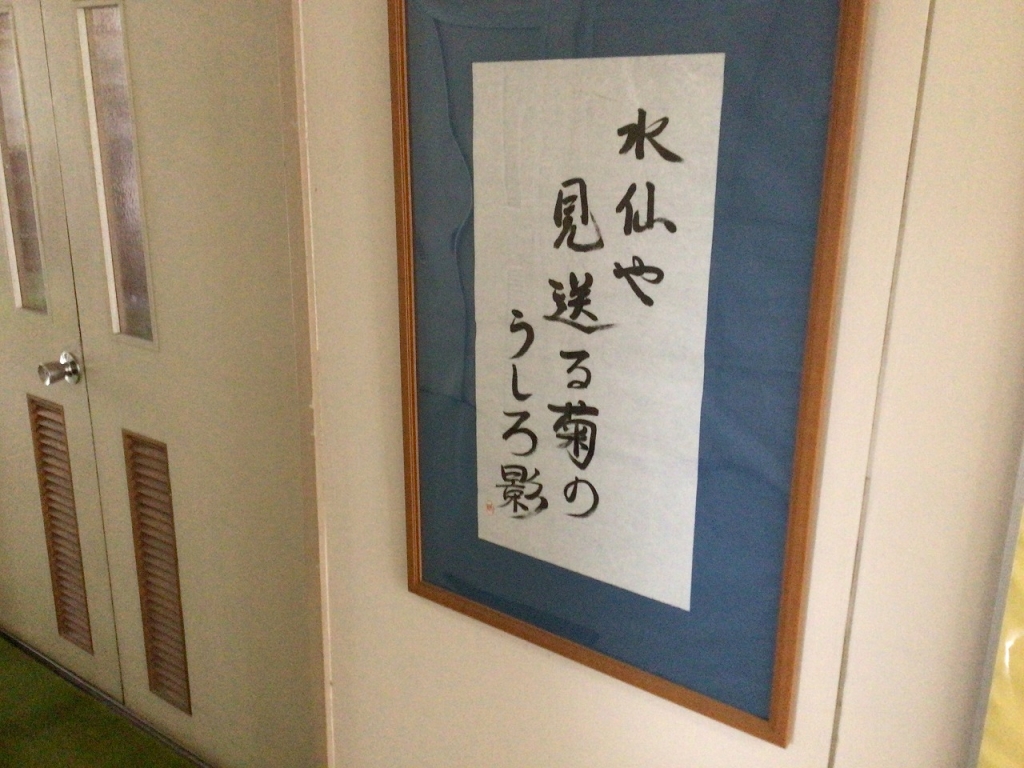 水仙や
見送る菊の
うしろ影